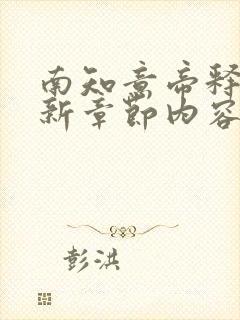 南知意帝释
新章節内容
彭洪